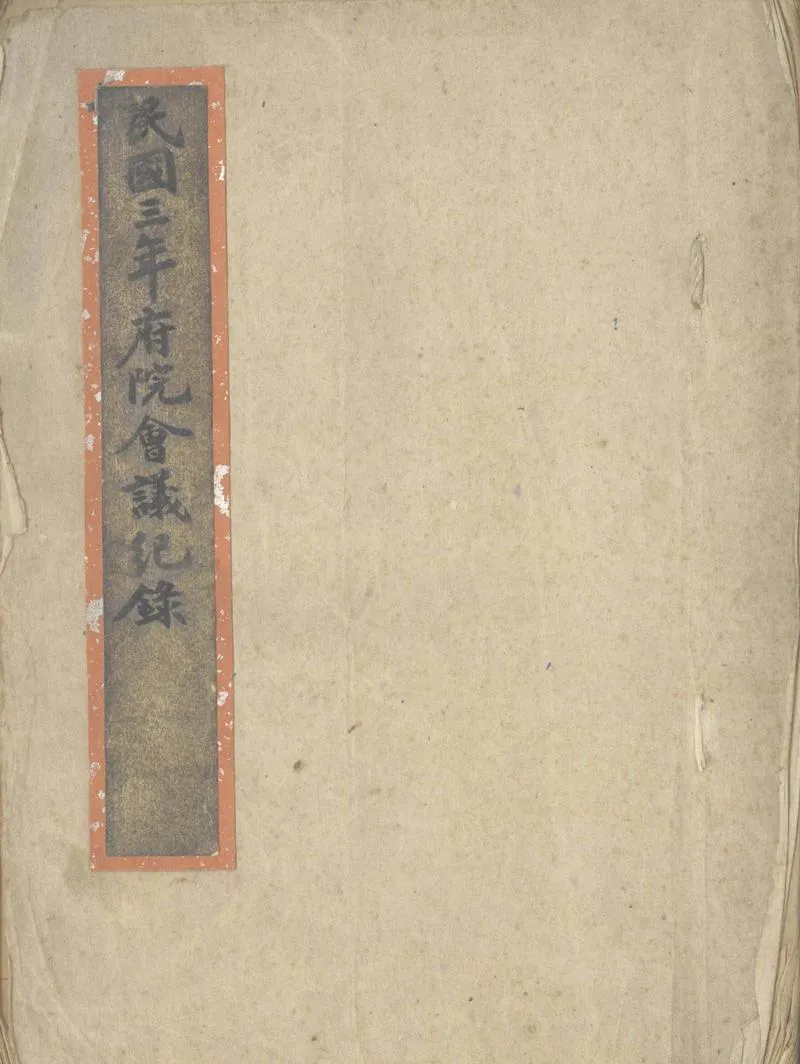 民國三年府院會議紀錄